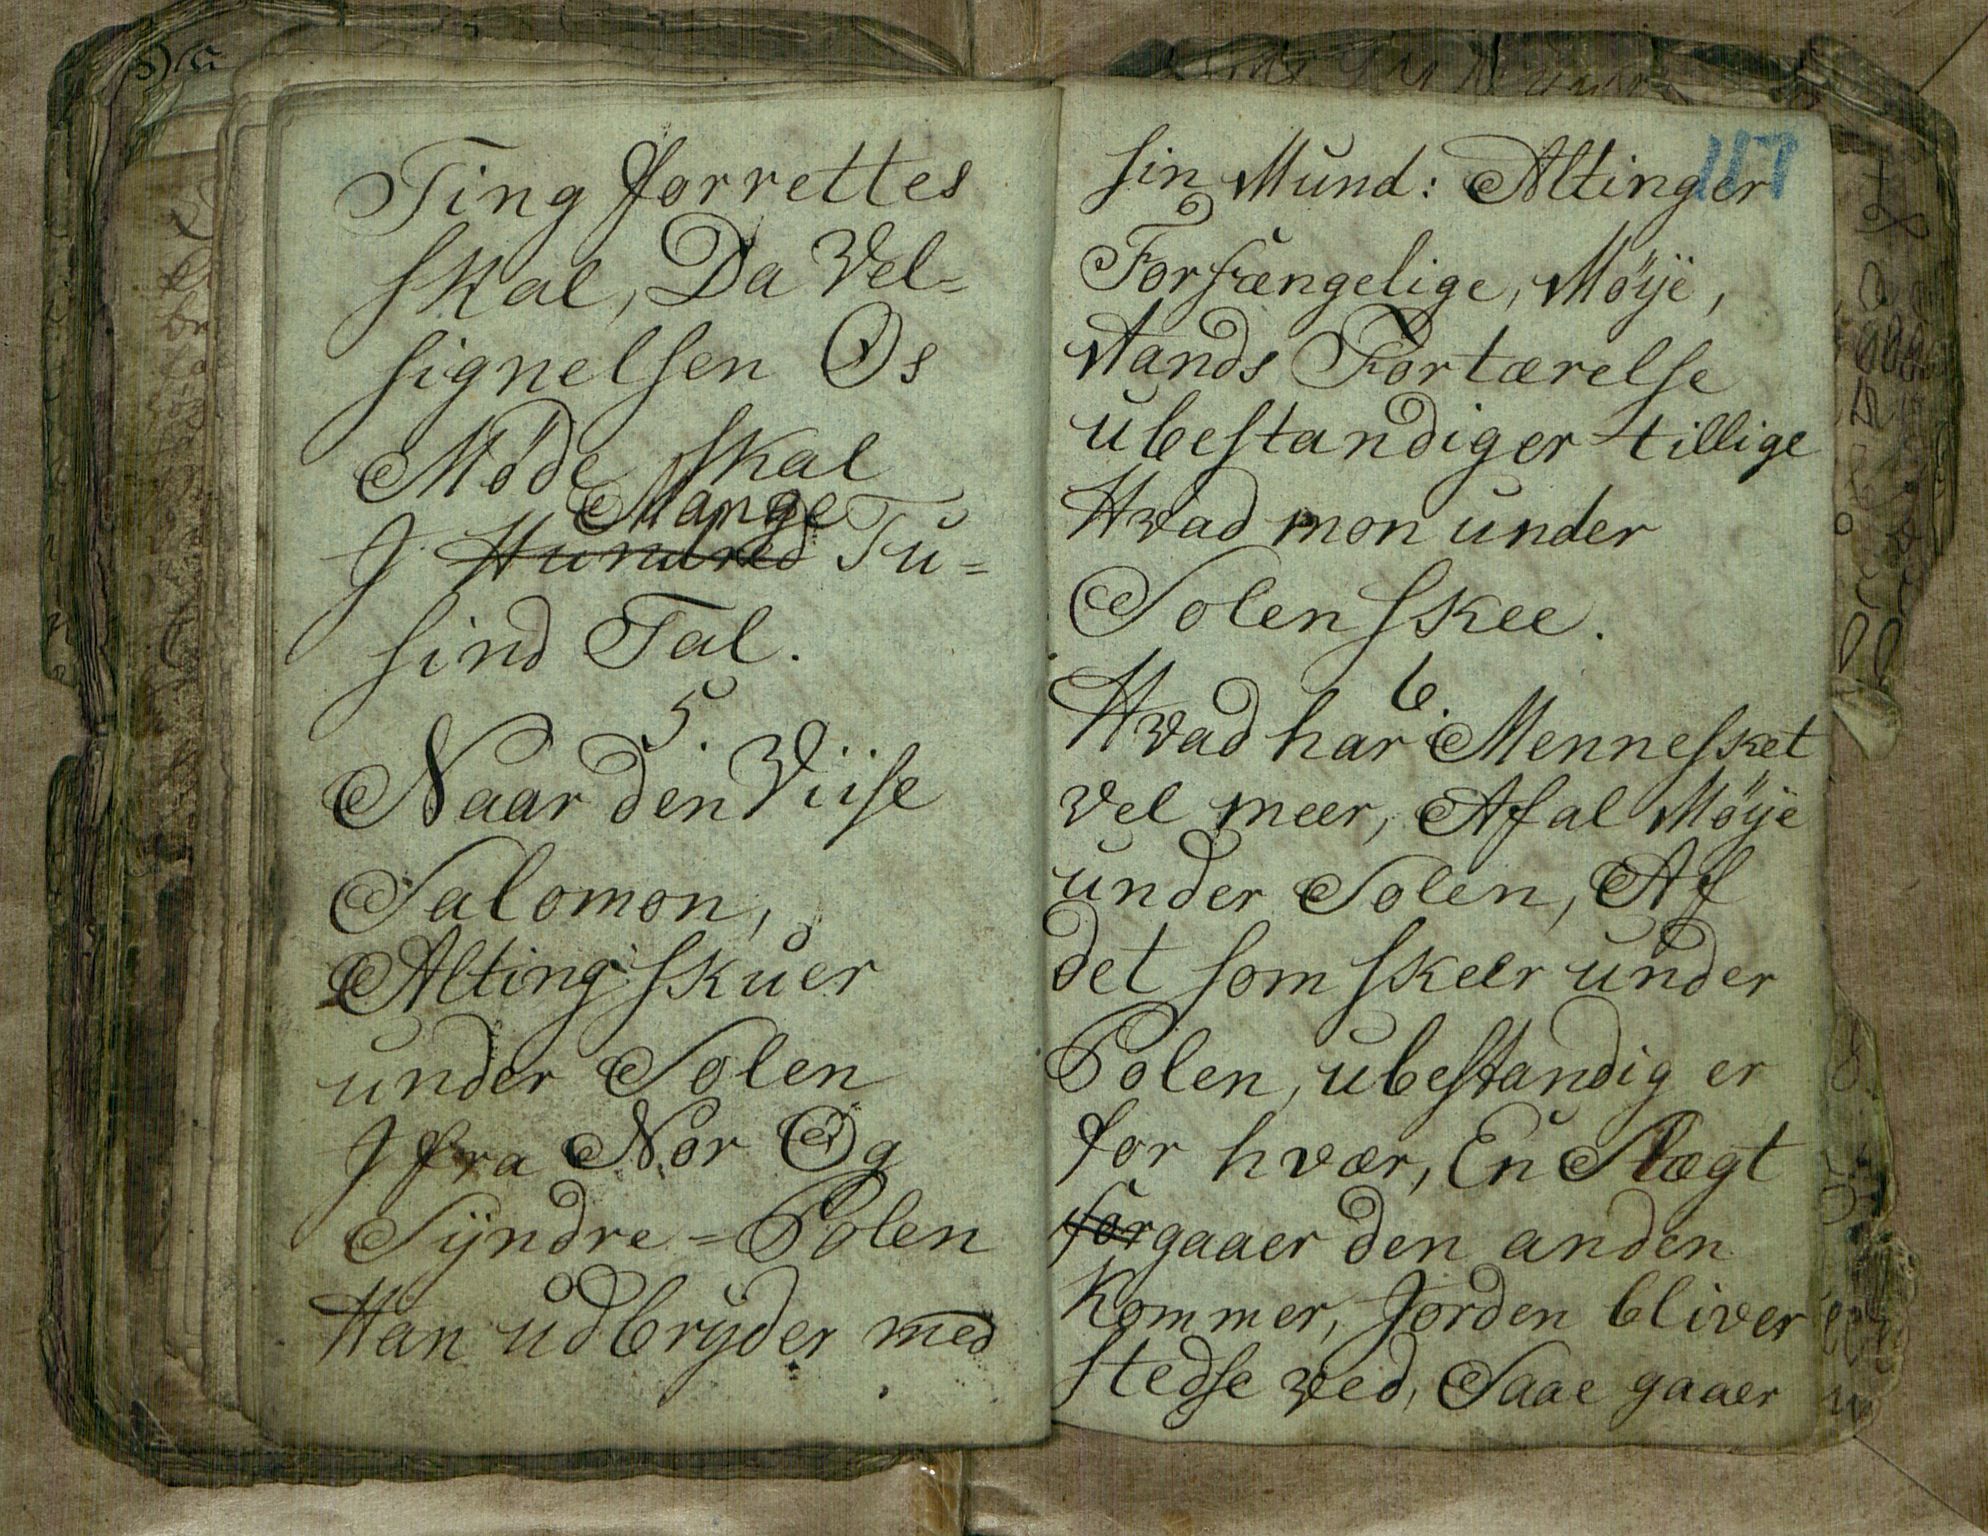 Ting forrettes
skal, Da Vel=
signelsen Os
Møde skal
Mange
J Hundred Tu=
sind Tal.
5.
Naar den Viise
Salomon,
Alting skuer
under Solen
J fra Nor Og
Syndre=Polen
Han udbryder med
117
sin Mund: Alting er
Forfængelige, Møye,
Aands Fortærelse
ubestandig er tillige
Hvad mon under
Solen skee.
6.
Hvad har Mennesket
vel meer, Af al Møye
under Solen, Af
det som skeer under
Polen, ubestandig er
for hvær, En Slægt
forgaaer den anden
Kommer, Jorden bliver
stedse ved, Saae gaaer